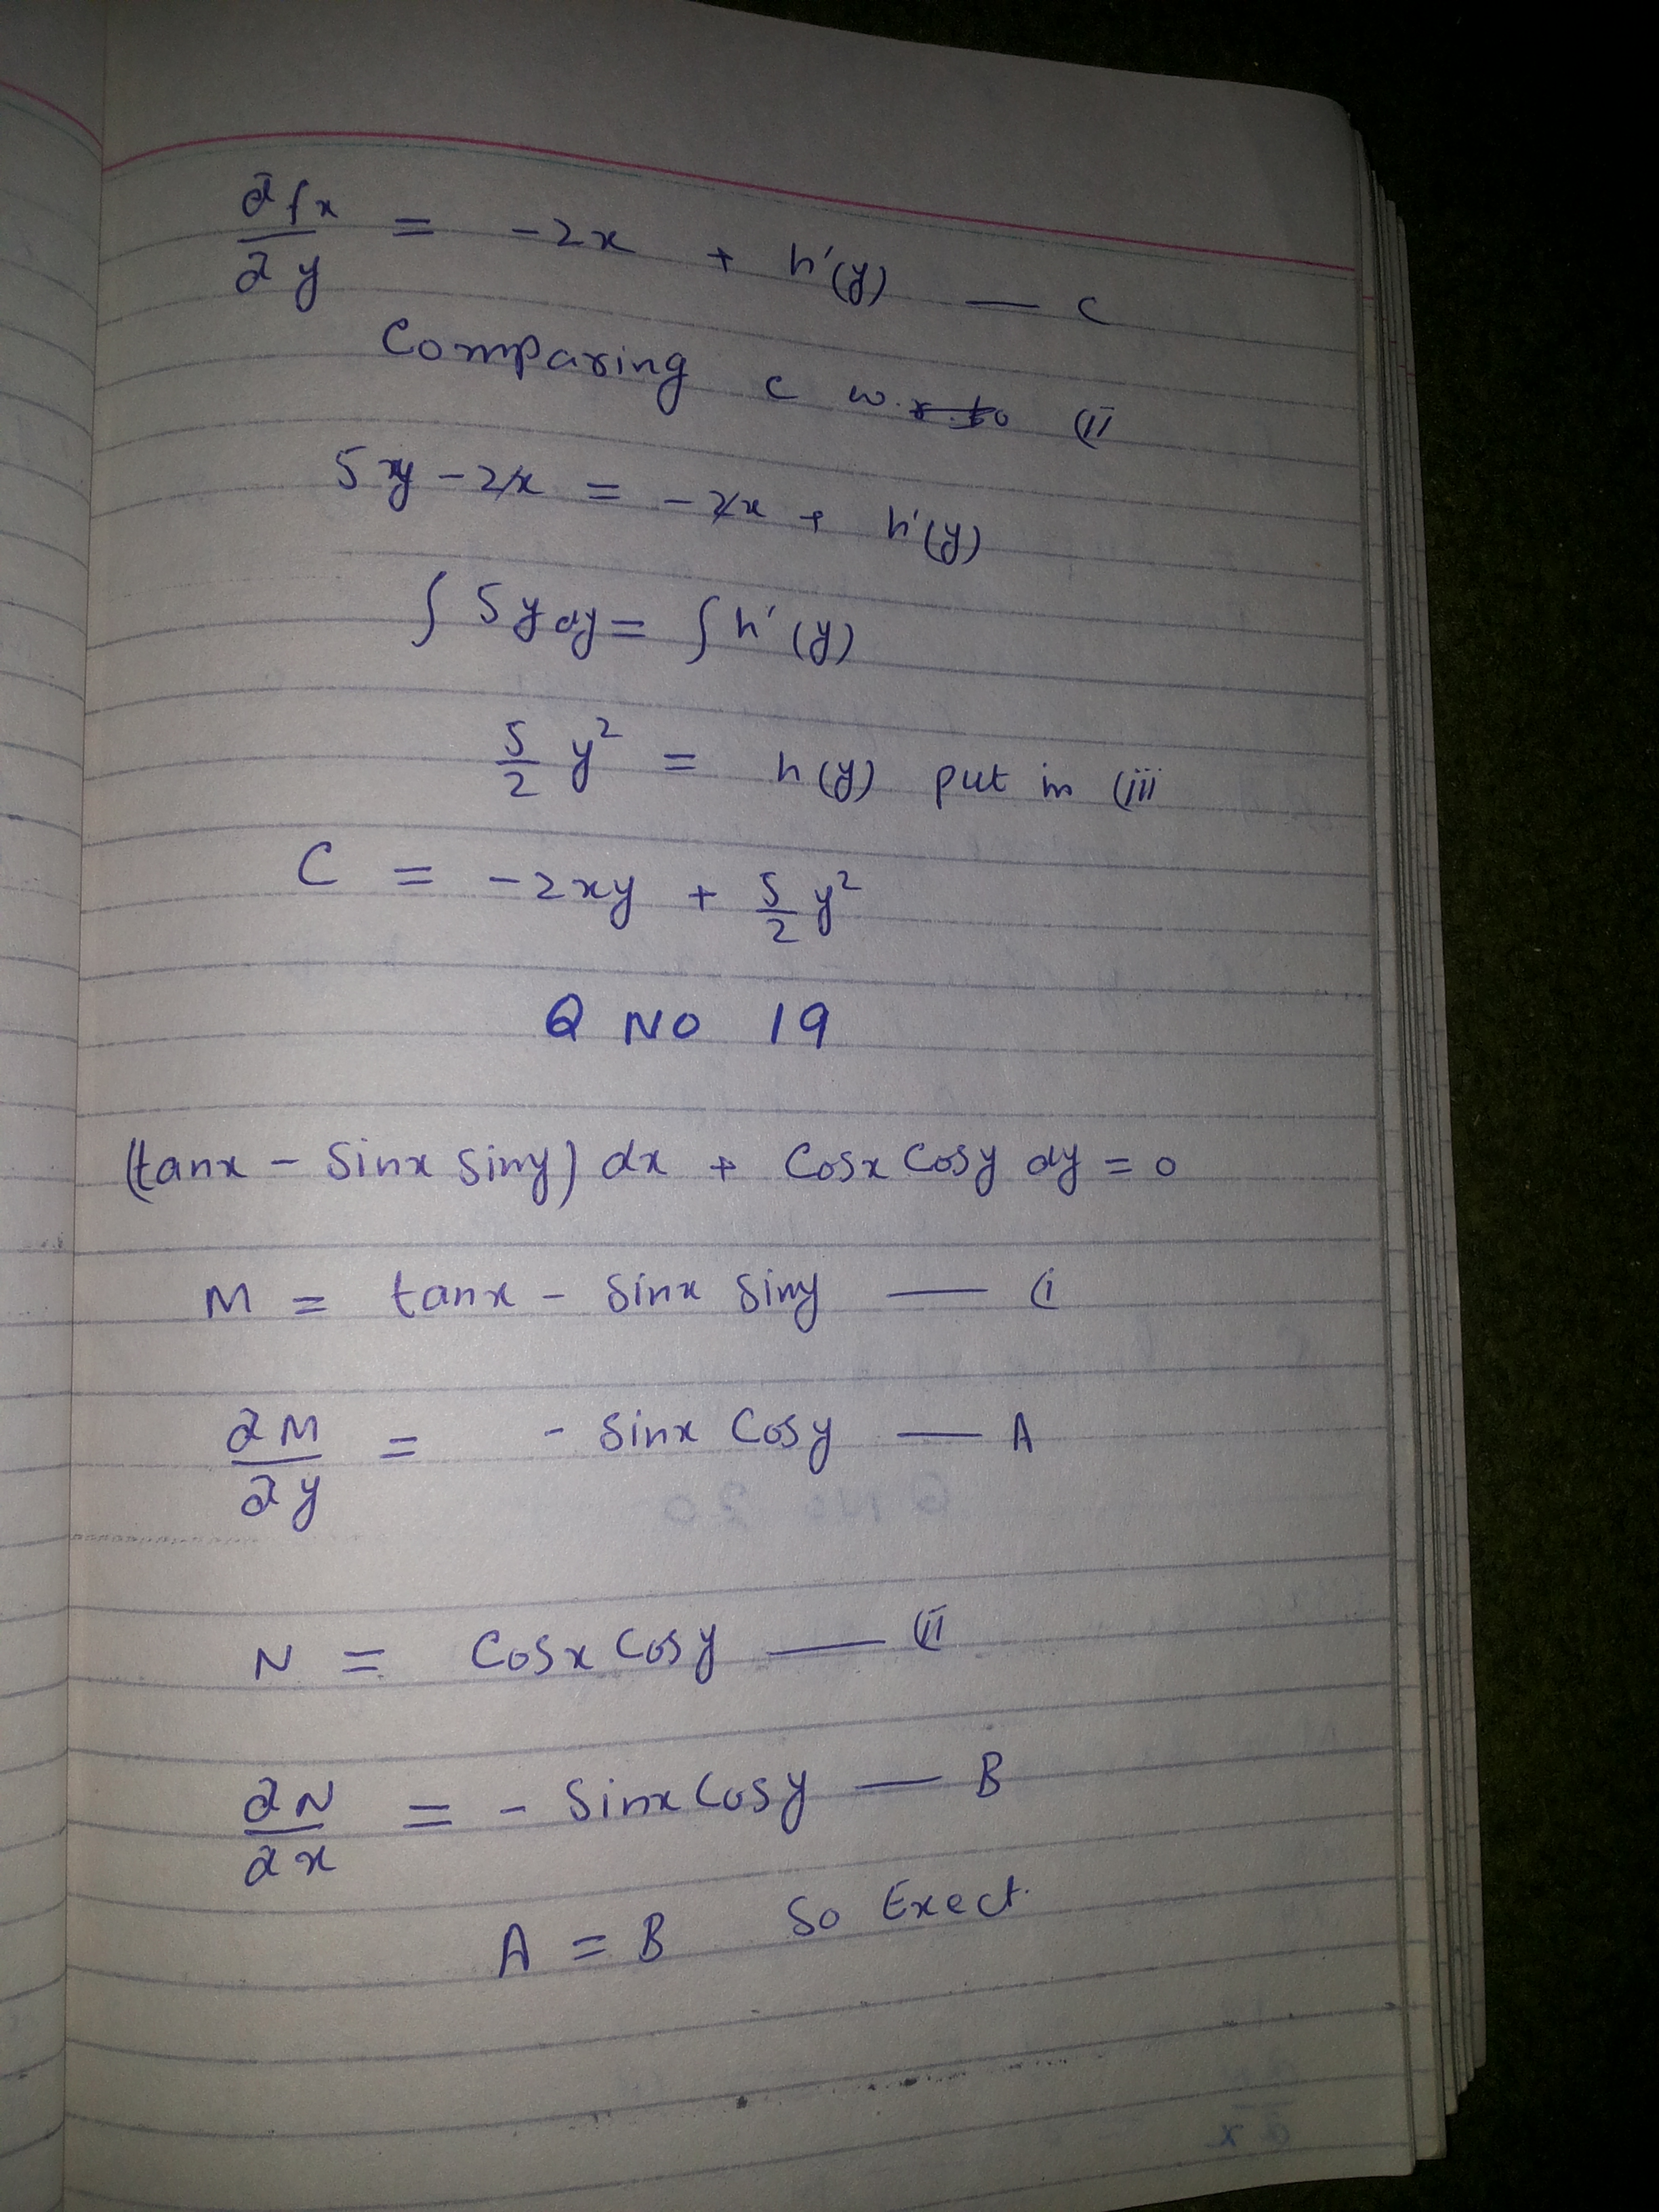 ∂fx/∂y = -2x + h'(y) — C
Comparing C w.r.to (ii
5xy - 2x = -2x + h'(y)
∫ 5y dy = ∫ h'(y)
5/2 y² = h(y) put in (iii
C = -2xy + 5/2 y²
Q NO 19
(tanx - Sinx Siny) dx + Cosx Cosy dy = 0
M = tanx - Sinx Siny — (i
∂M/∂y = - Sinx Cosy — A
N = Cosx Cosy — (ii
∂N/∂x = - Sinx Cosy — B
A = B So Exect.